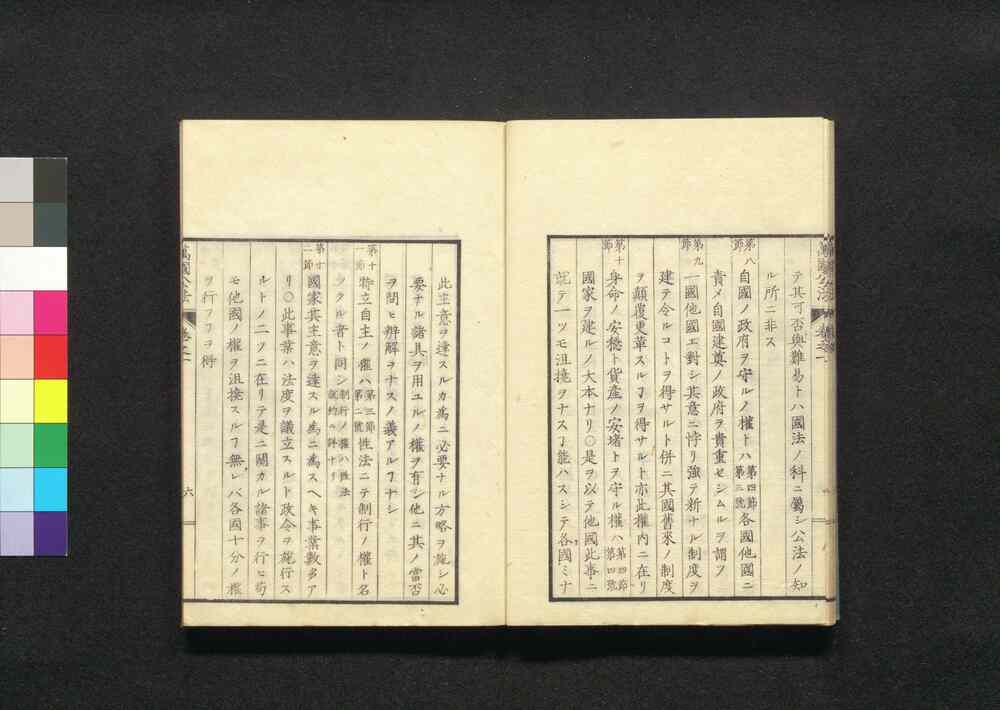 テ其可否與難易トハ國法ノ科ニ屬シ公法ノ知
ル所ニ非ス
第八節
自國ノ政府ヲ守ルノ權トハ第四節第三號各國他國ニ
責メ自國建奠ノ政府ヲ貴重セシムルヲ謂フ
第九節
一國他國エ對シ其意ニ悖リ強テ新ナル制度ヲ
建テ令ルコトヲ得サルト併ニ其國舊來ノ制度
ヲ顛覆更革スルヿヲ得サルト亦此權内ニ在リ
第十節
身命ノ安穩ト貨産ノ安堵トヲ守ル權ハ第四節第四號
國家ヲ建ルノ大本ナリ〇是ヲ以テ他國此事ニ
就テ一ツモ沮撓ヲナスヿ能ハスシテ各國ミナ
萬國公法
卷之一
此主意ヲ達スルカ為ニ必要ナル方略ヲ施シ必
要ナル諸具ヲ用ユルノ權ヲ有シ他ニ其ノ當否
ヲ問ヒ辨解ヲナスノ義アルヿナシ
第十一節
特立自主ノ權ハ第三節第二號性法ニテ制行ノ權ト名
ツクル者ト同シ制行ノ權ハ性法
第十二節
國家其主意ヲ達スル為ニ為スヘキ事業數多ア
リ〇此事業ハ法度ヲ議立スルト政令ヲ施行ス
ルトノ二ツニ在リテ是ニ關カル諸事ヲ行ヒ苟
モ他國ノ權ヲ沮撓スルヿ無レバ各國十分ノ權
ヲ行フヿヲ得
萬國公法
卷之一
六